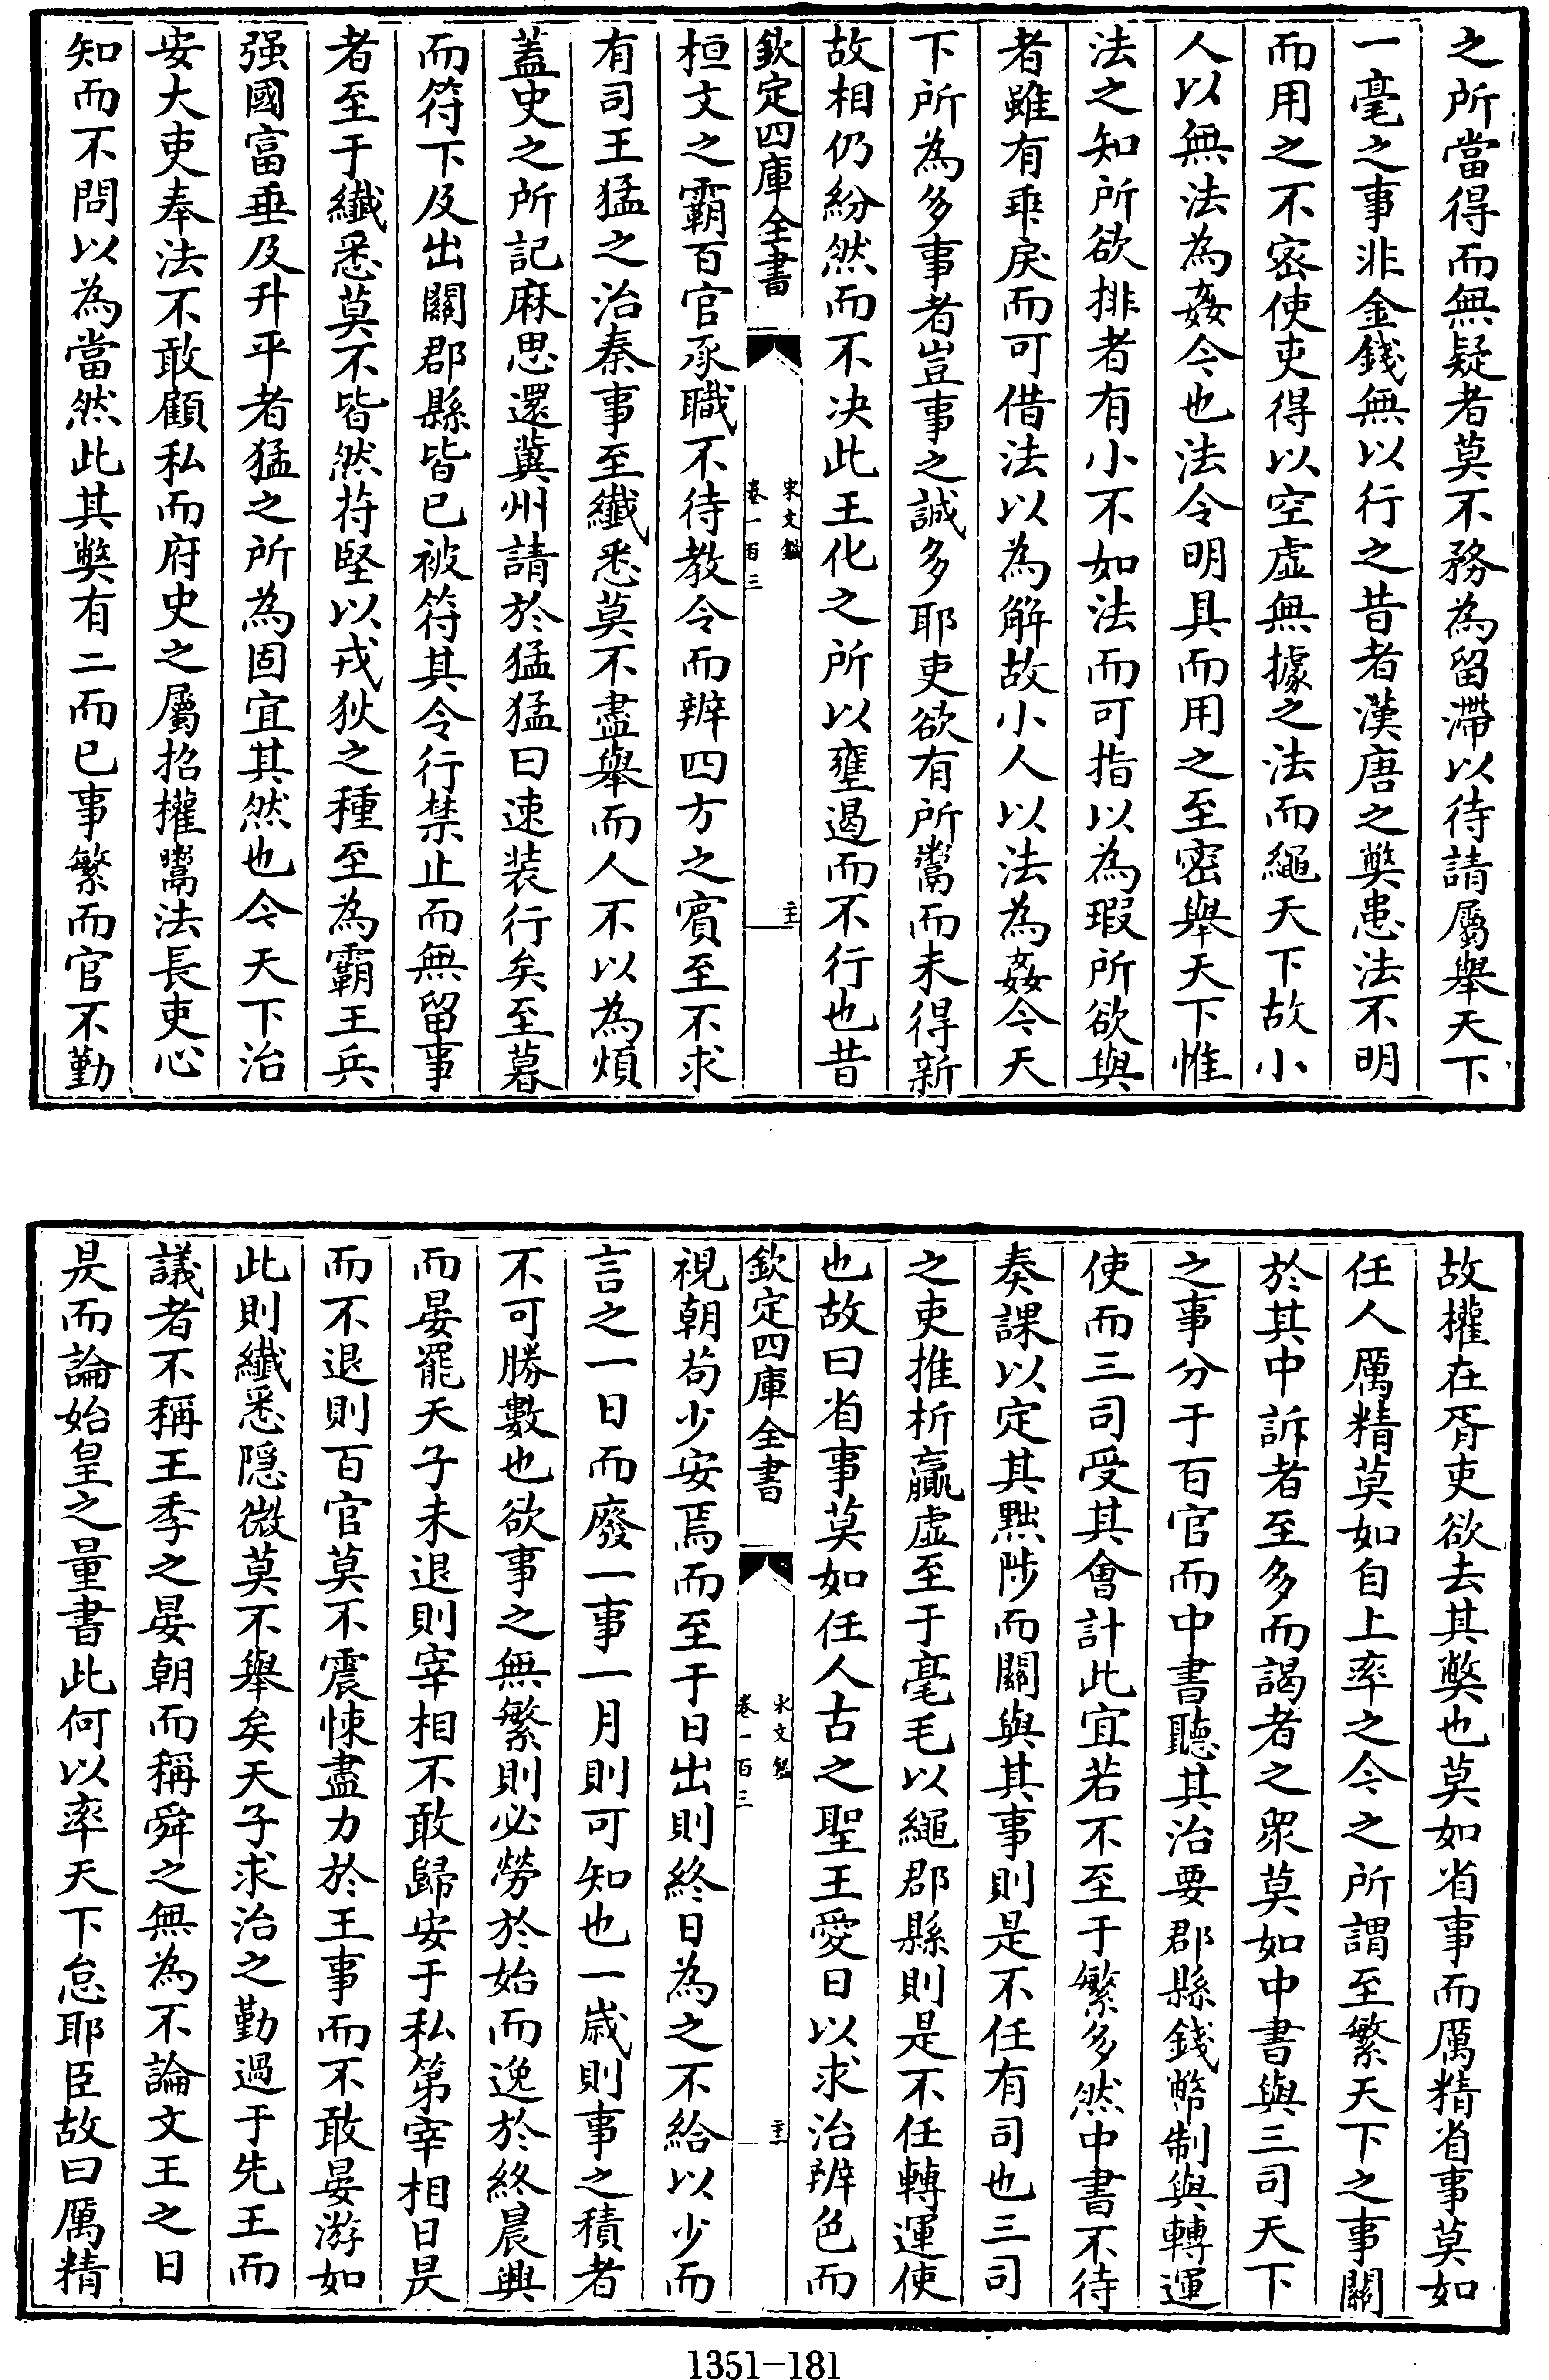 之所當得而無疑者莫不務為留滯以待請屬舉天下
一毫之事非金錢無以行之昔者漢唐之弊患法不明
而用之不密使吏得以空虛無據之法而繩天下故小
人以無法為姦今也法令明具而用之至密舉天下惟
法之知所欲排者有小不如法而可指以為瑕所欲與
者雖有乖戾而可借法以為解故小人以法為姦今天
下所為多事者豈事之誠多耶吏欲有所鬻而未得新
故相仍紛然而不决此王化之所以壅遏而不行也昔
欽定四庫全書
宋文鑑
卷一百三
主
桓文之霸百官承職不待教令而辦四方之賓至不求
有司王猛之治秦事至纖悉莫不盡舉而人不以為煩
蓋史之所記麻思還冀州請於猛猛曰速装行矣至暮
而符下及出關郡縣皆已被符其令行禁止而無留事
者至于纖悉莫不皆然苻堅以戎狄之種至為霸王兵
强國富垂及升平者猛之所為固宜其然也今天下治
安大吏奉法不敢顧私而府史之屬招權鬻法長吏心
知而不問以為當然此其弊有二而已事繁而官不勤
故權在胥吏欲去其弊也莫如省事而厲精省事莫如
任人厲精莫如自上率之今之所謂至繁天下之事關
於其中訴者至多而謁者之衆莫如中書與三司天下
之事分于百官而中書聽其治要郡縣錢幣制與轉運
使而三司受其會計此宜若不至于繁多然中書不待
奏課以定其黜陟而關與其事則是不任有司也三司
之吏推析贏虛至于毫毛以繩郡縣則是不任轉運使
也故曰省事莫如任人古之聖王愛日以求治辨色而
欽定四庫全書
宋文鑑
卷一百三
視朝苟少安焉而至于日出則終日為之不給以少而
言之一日而廢一事一月則可知也一歲則事之積者
不可勝數也欲事之無繁則必勞於始而逸於終晨興
而晏罷天子未退則宰相不敢歸安于私第宰相日昃
而不退則百官莫不震悚盡力於王事而不敢晏游如
此則纖悉隱微莫不舉矣天子求治之勤過于先王而
議者不稱王季之晏朝而稱舜之無為不論文王之日
昃而論始皇之量書此何以率天下怠耶臣故曰厲精
1351-181